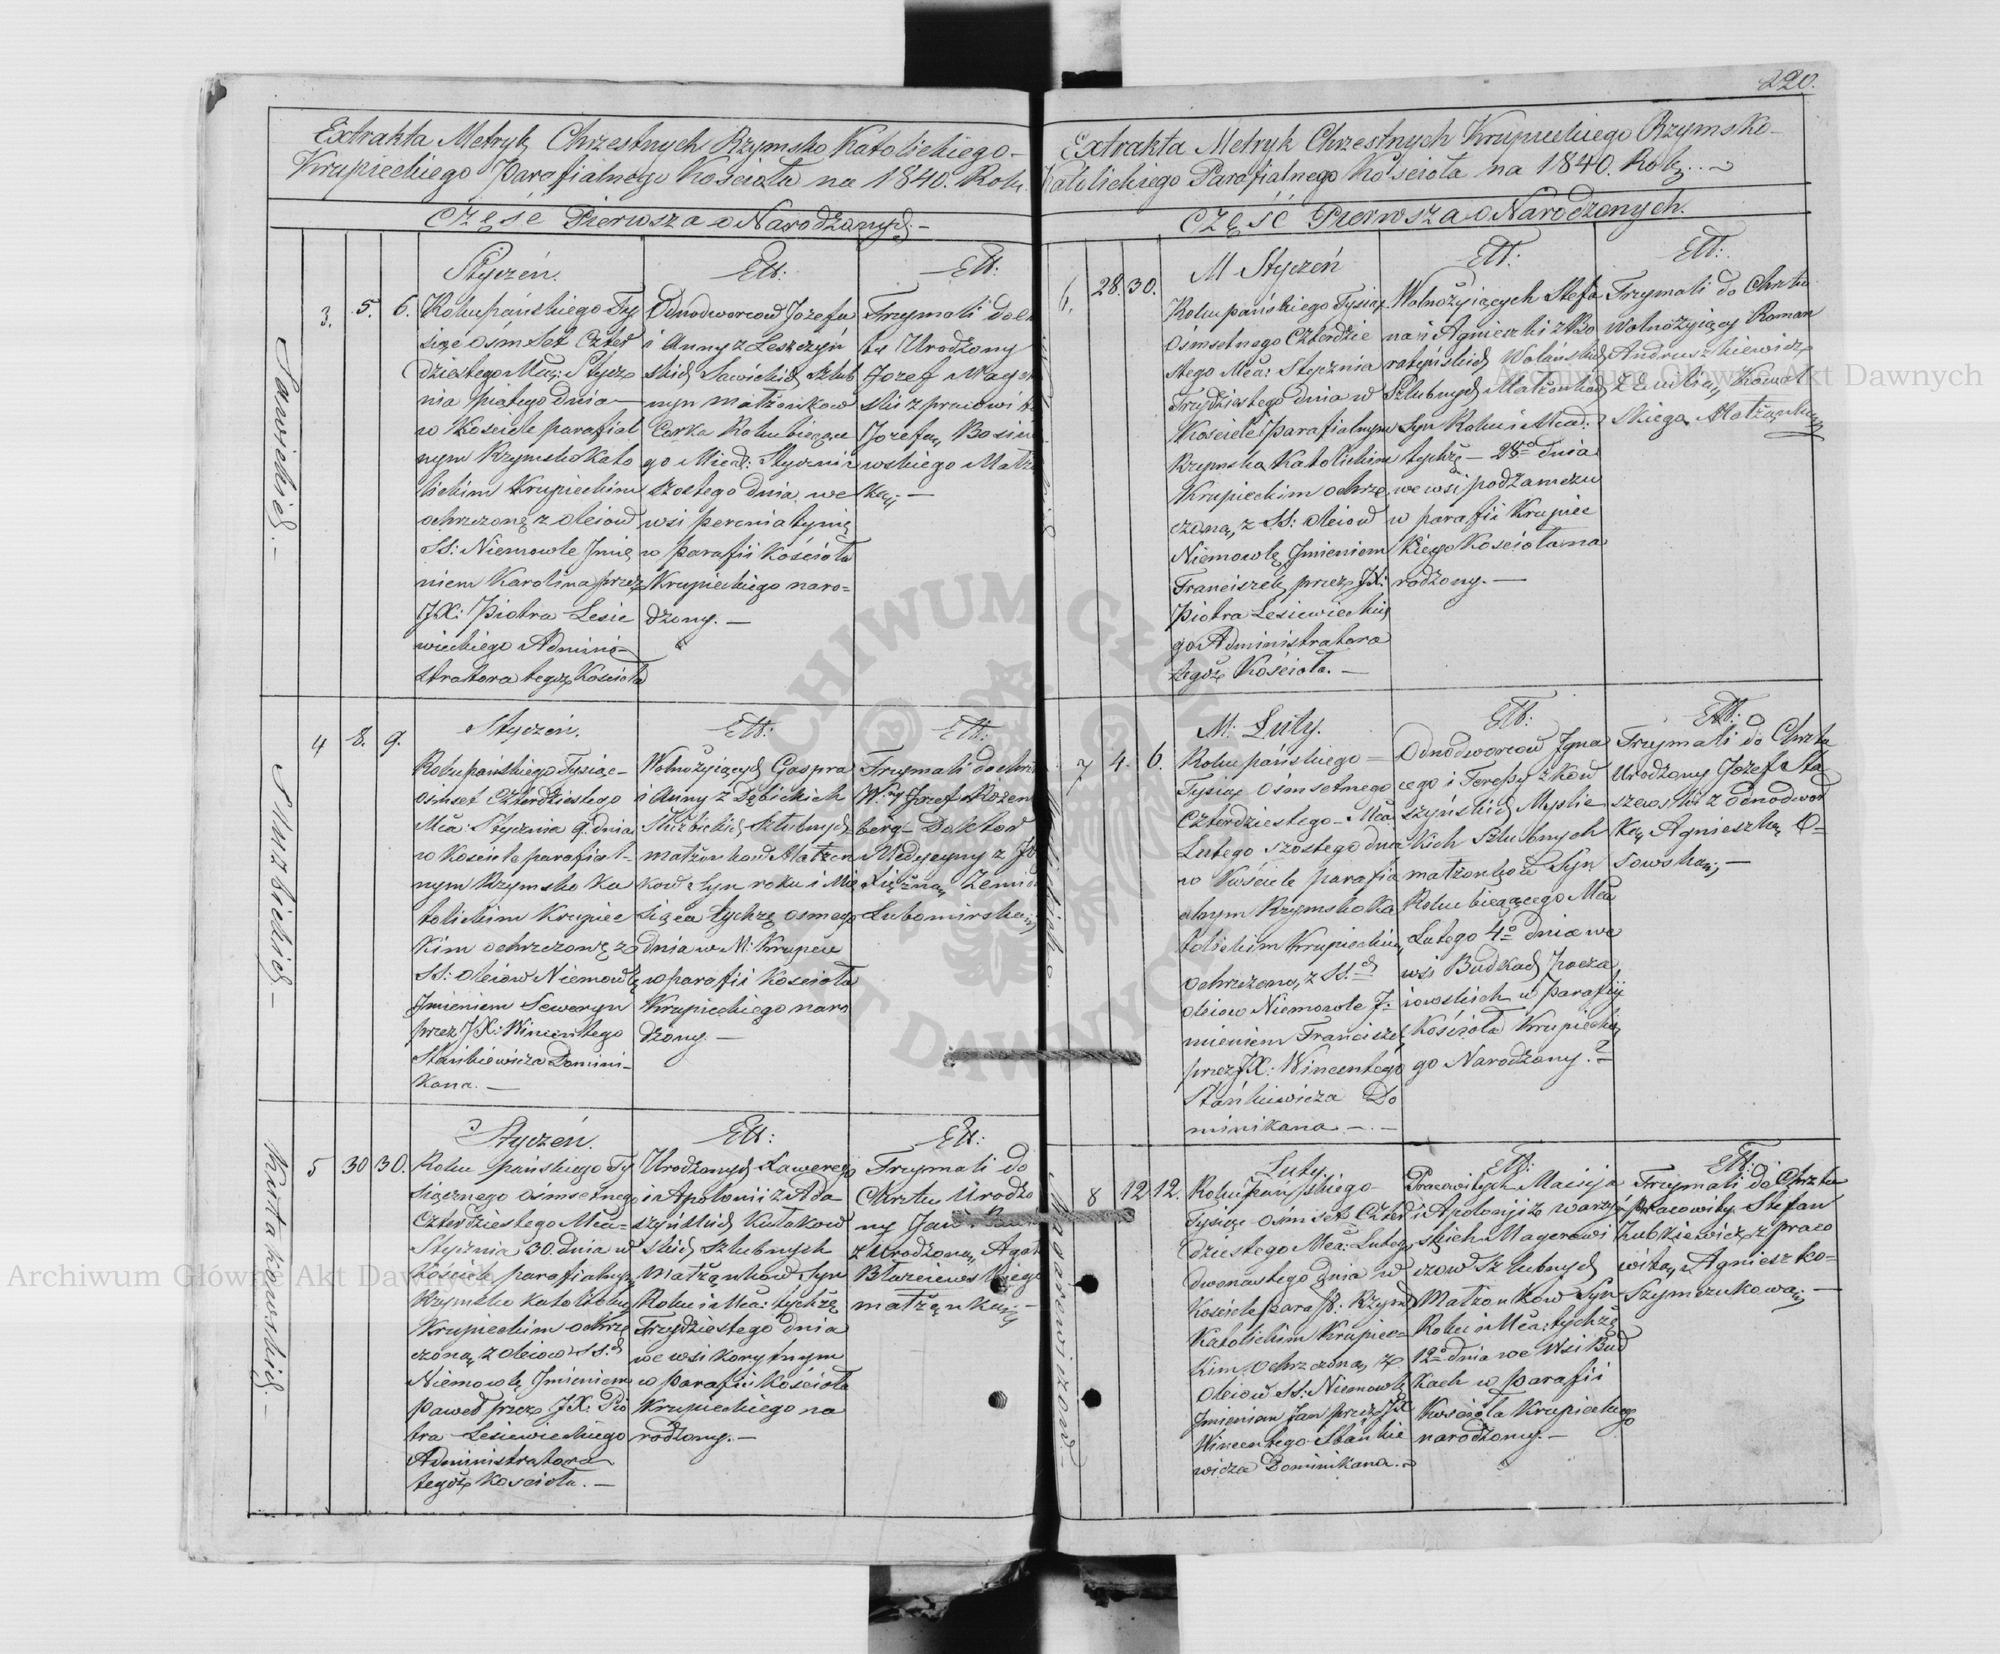 220.
Extrakta Metryk Chrzestnych Rzymsko Katolickiego-
Krupieckiego Parafialnego Kościoła na 1840. Rok.
CZĘŚĆ Pierwsza o Narodzonych.-
Sawickich.-
3. 5. 6.
Styczeń.
Roku pańskiego Ty
siąc ośmset Czter
dziestego Mca: Stycz
nia piątego dnia
w Kościele parafial
nym Rzymsko Kato
lickim Krupieckim
ochrzczone z oleiow
SS: Niemowle Jmie
niem Karolina przez
JX: Piotra Lesie
wieckiego Admini-
stratora tegoż Kościoła
Ett:
Odnodworcow Jozefa
i Anny z Leszczyń
skich Sawickich Szlub
nyn małżonkow
Corka Roku bieżące
go Miesi: Stycznia
szostego dnia we
wsi
w parafii Kościoła
Krupieckiego naro=
dzony.-
Ett:
Trzymali do
tu Urodzony
Jozef
ski z pracowi
Jozefą
wskiego Małż
ką;-
4 8. 9.
Styczeń.
Roku pańskiego Tysiąc-
ośmset Czterdziestego
Mca: Stycznia 9. dnia
w Kościele parafial-
nym Rzymsko Ka
tolickim Krupiec
kim ochrzczone zo
SS: oleiow Niemowlę
Jmieniem Seweryn
przez JX: Wincentego
Stańkiewicza Domini-
kana.-
Ett:
Wolnożyiących Gaspra
i Anny z Dębickich
Służbickich Szlubnych
małżonkow Małżon
kow Syn roku i Mie
siąca tychże osmego
dnia w M: Krupcu
w parafii Kościoła
Krupieckiego naro
dzony.-
Ett:
Trzymali do chrz
W.ny Jozef Rozen
berg- Doktor
Medycyny z
Xiężną Zenei
Lubomirską
Kułakowskich-
5 30 30.
Styczeń.
Roku pańskiego Ty
siącznego ośmsetnego
Czterdziestego Mca=
Stycznia 30. dnia w
Kościele parafialnym
Rzymsko Katolickim
Krupieckim ochrz
czona, z oleiow SS.ch
Niemowlę Jmieniem
Paweł przez JX: Pio
tra Lesiewieckiego
Administratora
tegoż Kościoła.-
Ett:
Urodzonych Xawerego
i Apolonii z Ada-
szyńskich Kułakow
skich Szlubnych
Małżonkow Syn
Roku i Mca: tychże
Trzydziestego dnia
we wsi Korytnym
w parafii Kościoła
Krupieckiego na
rodzony.-
Ett:
Trzymali do
Chrztu Urodzo
ny Jan
z Urodzoną Agat
Błażeiews kiego
małżonką;-
Extrakta Metryk Chrzestnych Krupieckiego Rzymsko-
Katolickiego Parafialnego Kościoła na 1840. Rok..
CZĘŚĆ Pierwsza o Narodzonych.
6. 28. 30.
M Styczeń
Roku pańskiego Tysiąc
ośmsetnego Czterdzie
stego Mca: Stycznia
Trzydziestego dnia w
Kościele Parafialnym
Rzymsko Katolickim
Krupieckim ochrz
czona, z SS: oleiow
Niemowlę Jmieniem
Franciszek przez JX:
Piotra Lesiewieckie
go Administratora
tegoż Kościoła.-
Ett:
Wolnożyiących Stefa
na i Agnieszki z
Wolańskich
Szlubnych Małżonkow
Syn Roku i Mca:
tychże- 28.o dnia
we wsi podzamczu
w parafii Krupiec
kiego Kościoła na
rodzony.-
Ett:
Trzymali do Chrztu
Wolnożyiący Roman
Andruszkiewicz
z Emilią Kowal
skiego Małżonką
7 4. 6.
M: Luty.
Roku pańskiego=
Tysiąc ośmsetnego
Czterdziestego- Mca.
Lutego szostego dnia
w Kościele parafia
alnym Rzymsko Ka
tolickim Krupieckim
ochrzczona, z SS.ch
oleiow Niemowle J-
mieniem Franciszek
przez JX: Wincentego
Stańkiewicza Do
minikana.-
Ett:
Odnodworcow Jgna
cego i Teressy z Kow
szyńskich Myslic
kich Szlubnych
małżonkow Syn
Roku bieżącego Mca
Lutego 4.o dnia we
wsi Budkach
iowskich w Parafij
Kościoła Krupieckie
go Narodzony.-
Ett:
Trzymali do Chrzta
Urodzony Jozef Sta
szewski z odnodwor
ką Agnieszką O=
sowską;-
Magorewiczow.-
8 12 12.
Luty.
Roku pańskiego-
Tysiąc ośm set Czter
dziestego Mca: Lutego
dwonastego dnia w
Kościele paraf: Rzym
Katolickim Krupiec=
kim ochrzczona, z
oleiow SS: Niemowlę
Jmieniem Jan przez JX
Wincentego Stańkie
wicza Dominikana.-
Ett:
Pracowitych Macieja
i Apolonji z
skich Magerowi
czow Szlubnych
Małżonkow Syn
Roku i Mca: tychże
12.o dnia we Wsi Bud
kach w parafii
Kościoła Krupieckiego
narodzony.-
Ett:
Trzymali do Chrztu
pracowity Stefan
Zubkiewicz z praco
witą Agnieszko=
Szymczukową;-
Archiwum Główne Akt Dawnych
Archiwum Główne Akt Dawnych
ARCHIWUM GŁÓWNE AKT DAWNYCH